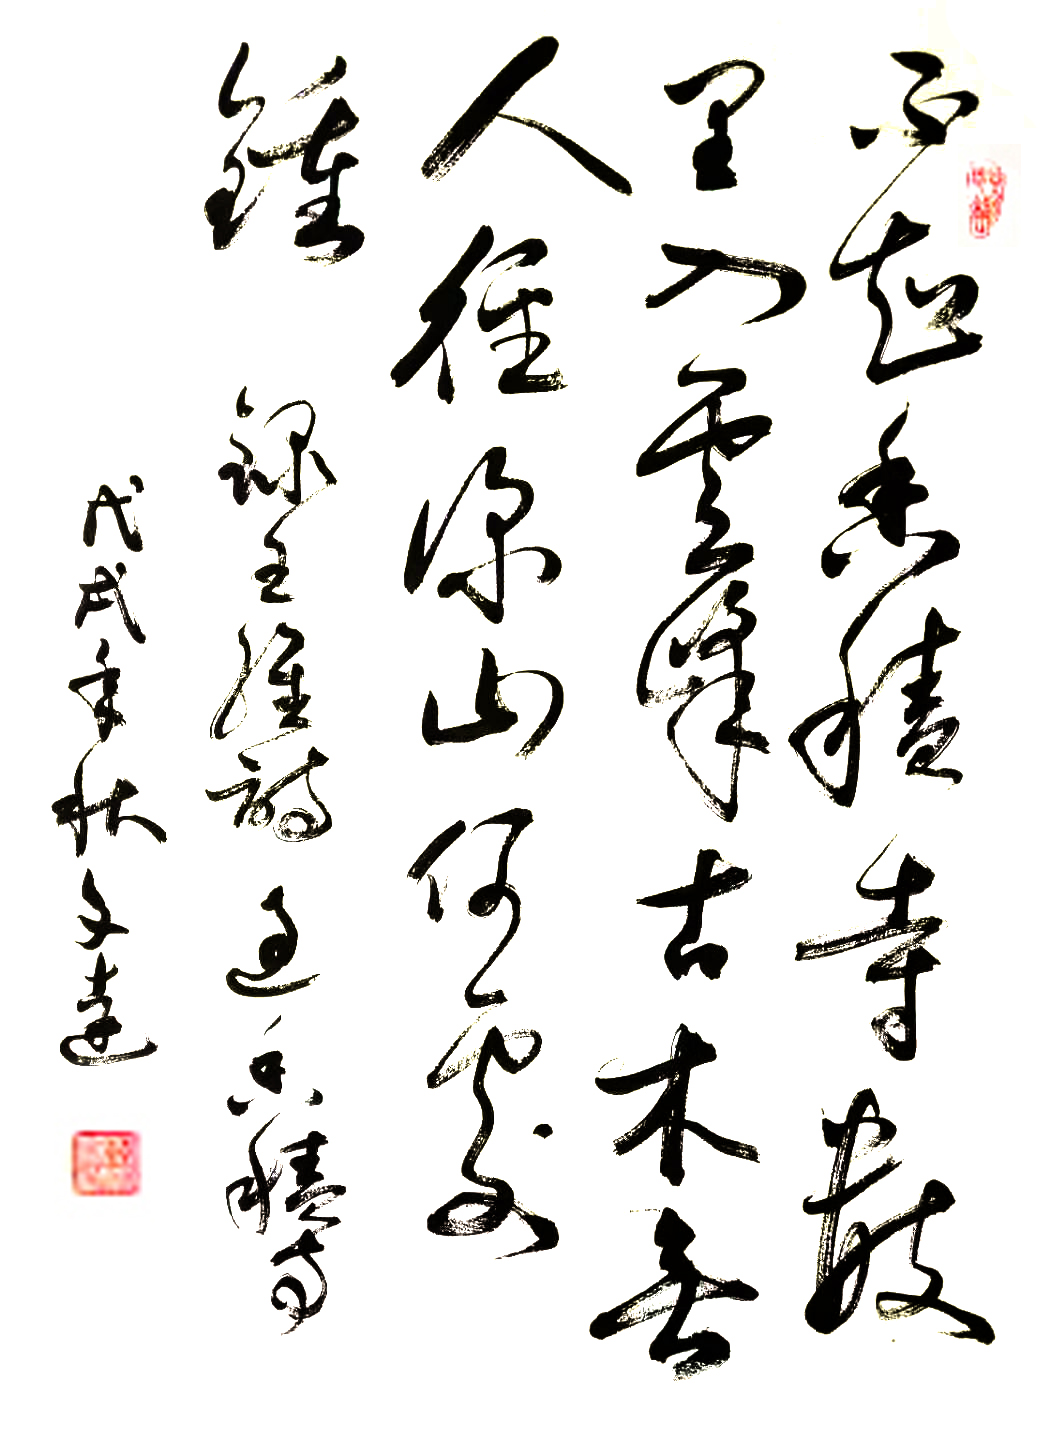 不知香積寺數
里入雲峰古木無
人徑深山何處
鍾
錄王維詩過香積寺
戊戌年秋文達